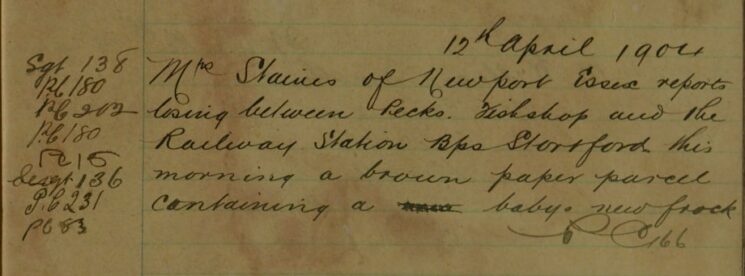 12th April 1904
Sgt 138
Mrs Staines of Newport Essex reports
PC 180
losing between Pecks. Fishshop and the
PC 202
Railway Station Bps Stortford this
PC 180
morning a brown paper parcel
PC 15
containing a babys new frock
136
PC 231
PC 83
PC 166